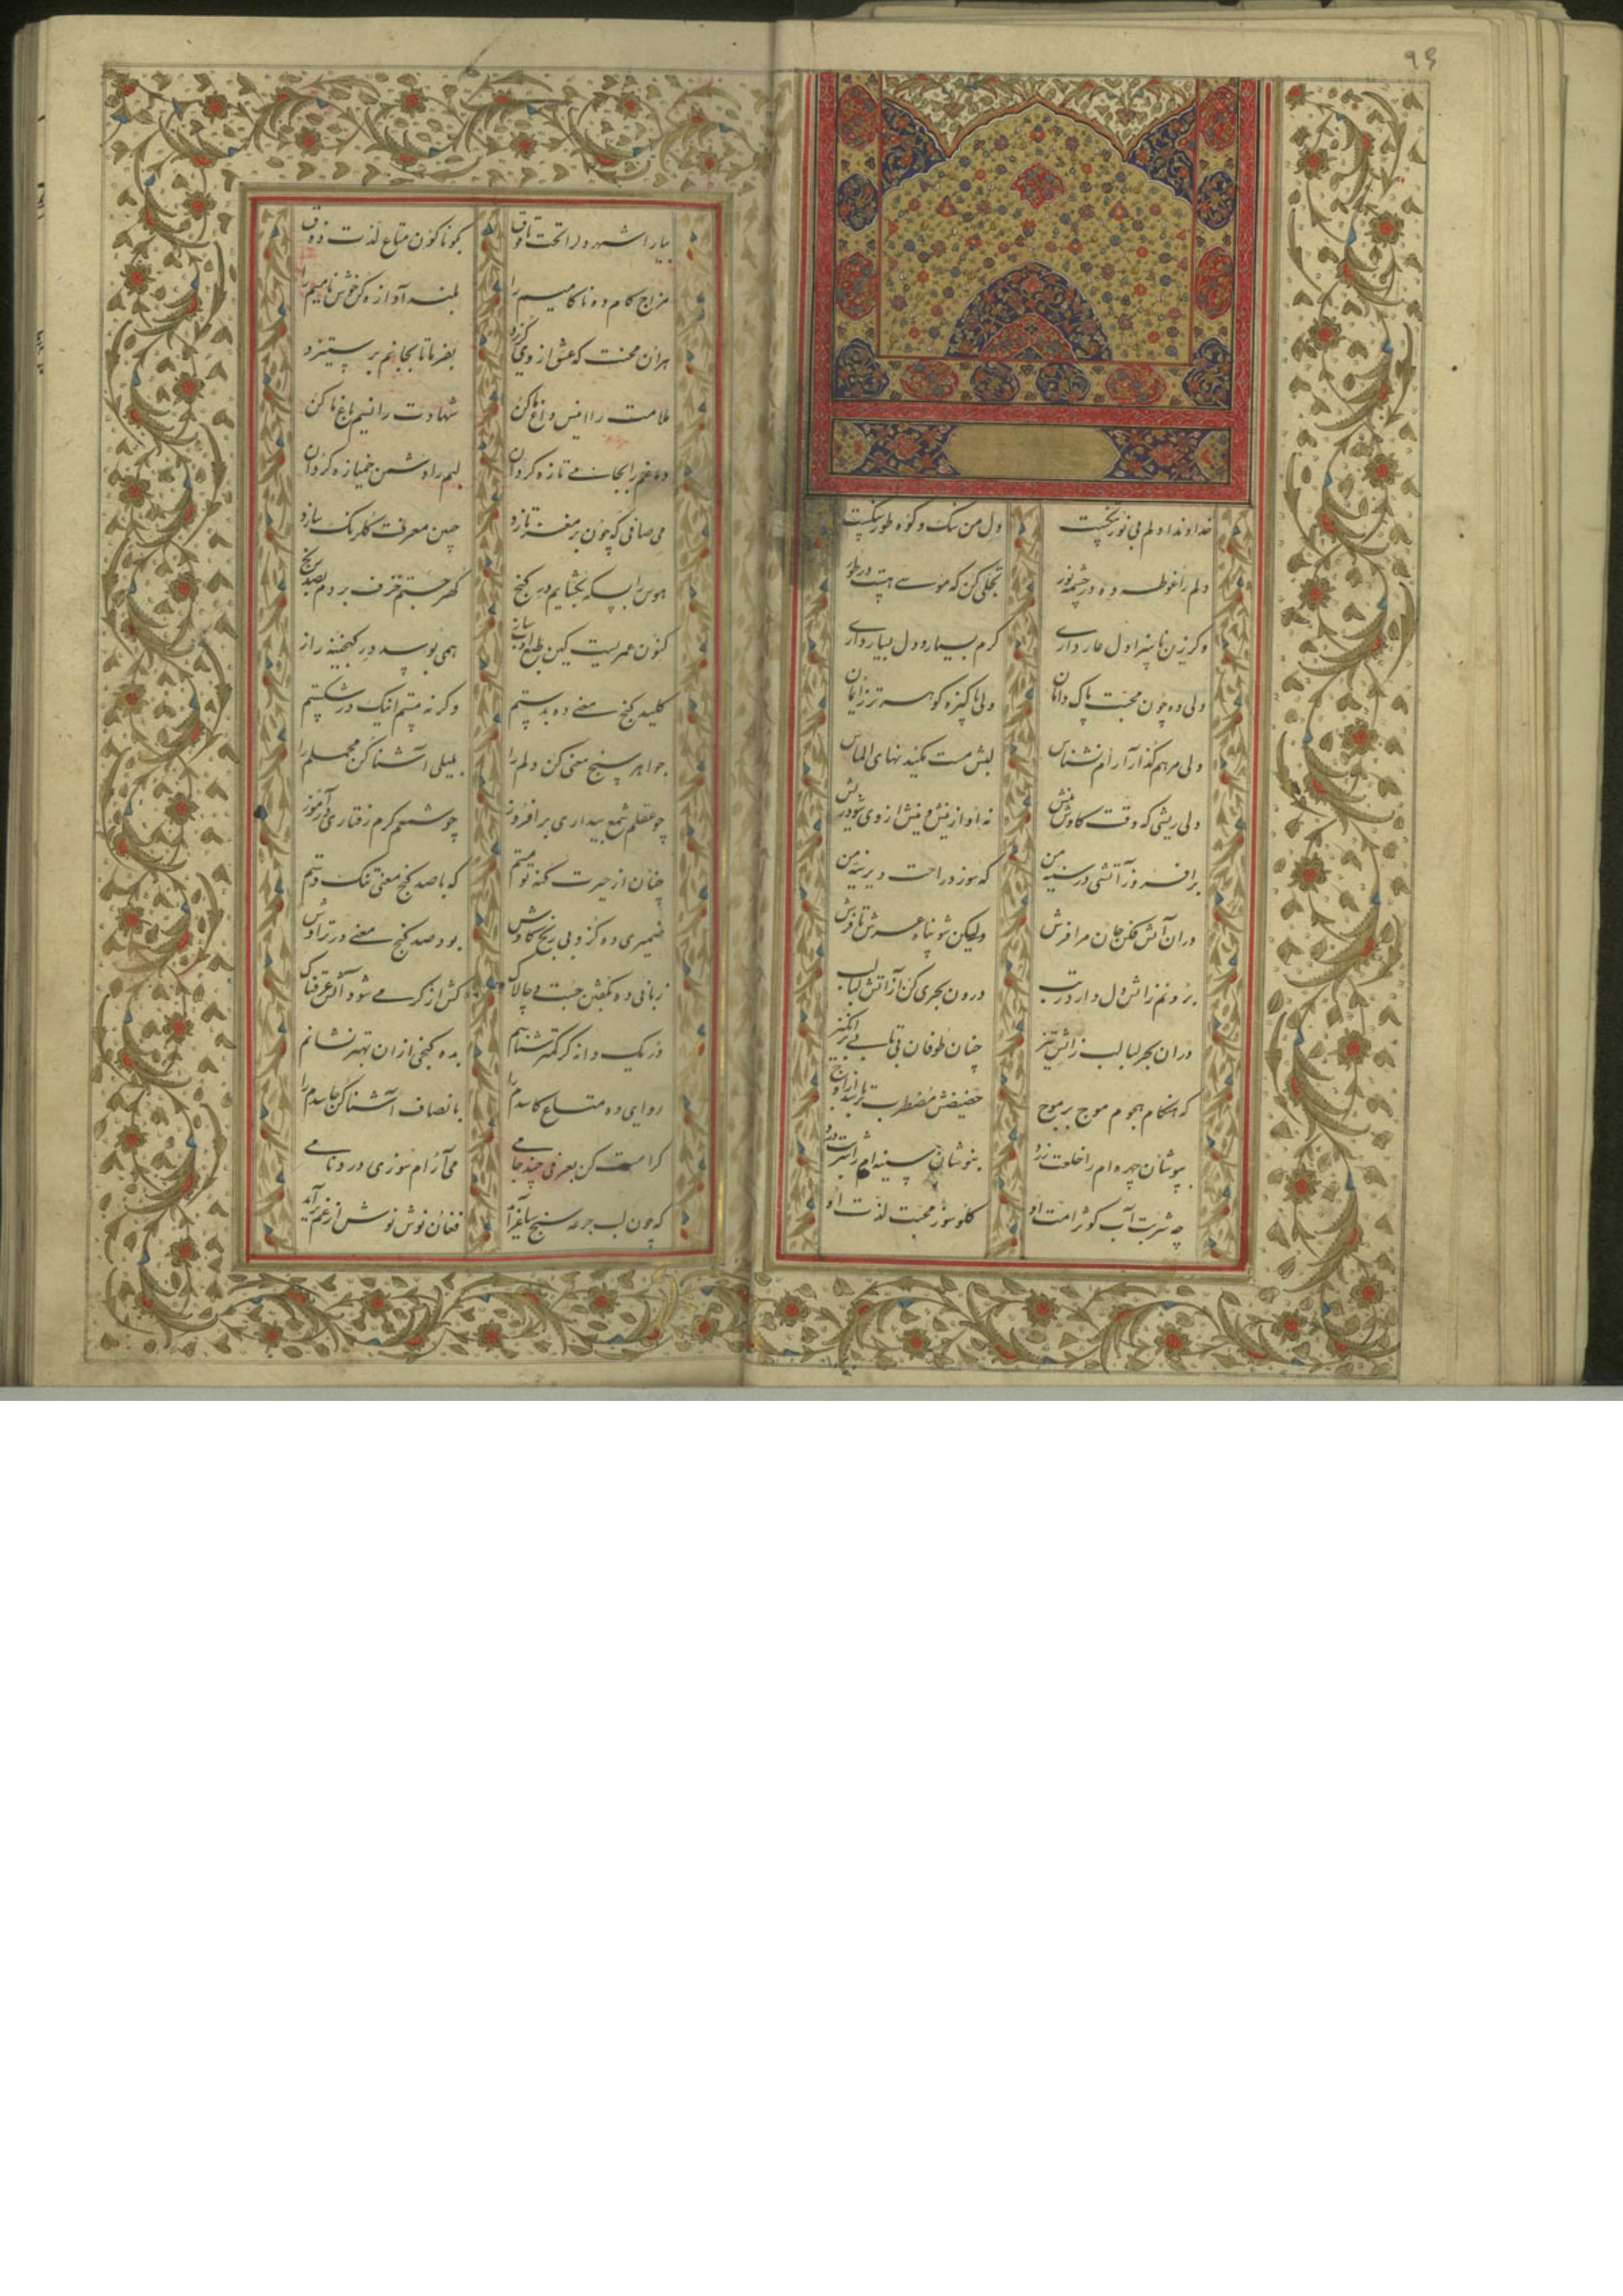 ۹۶
خداوندا دلم بی نور تنگست دل من سنگ و کوه طور سنگست
دلم را غوطه ده در چشمه نور تجلی کن که موسے هست در طور
وگر زین ناسزا دل عار داری کرم بسیار و دل بسیار داری
دلی ده چون محبت پاک دامان دلی پاکیزه گوهر تر ز ایمان
دلی مرهم گذار آرام نشناس لبش مست مکیدنهای الماس
دلی ریشی که وقت کاوش نیش نه او از نیش و نیش از وی شود ریش
برافروز آتشی در سینه من که سوزد راحت دیرینه من
دران آتش فکن جان مرا فرش ولیکن شو پناه عرش تا فرش
برونم زاتش دل دار درتب درون بحری کن از آتش لبالب
دران بحر لبالب زاتش تیز چنان طوفان بی تابی برانگیز
که هنگام هجوم موج بر موج حضیضش مضطرب تر باشد از اوج
بپوشان چهره ام را خلعت زرد بنوشان سینه ام را شربت درد
چه شربت آب کوثر امت او گلوسوز محبت لذت او
بیارا شهر دل را تحت تا فوق گوناگون متاع لذت ذوق
مزاج کام ده ناکامیم را بلند آوازه کن خوش نامیم را
هران محنت که عشق از وی گریزد بفرما تا بجانم برستیزد
ملامت را انیس داغ ما کن شهادت را نسیم باغ ما کن
دماغم را بجامے تازه گردان لبم را دشمن خمیازه گردان
می صافی که چون بر مغز تازد چمن معرفت گلرنگ سازد
هوس را بسکه بگشایم در گنج گهر جستم خزف بردم بصد رنج
کنون عمریست کین طبع ادب ساز همی بوسد در گنجینه راز
کلید گنج معنے ده بدستم وگرنه تیشم اینک در شکستم
جواهر سنج معنی کن دلم را بلیلی آشنا کن محملم را
چو عقلم شمع بیداری برافروز چو شمعم گرم رفتاری بیاموز
چنان از حیرت گنه تو مستم که با صد گنج معنی تنگ دستم
ضمیری ده کزو بی رنج کاوش بود صد گنج معنے در تراوش
زبانی ده بگفتن چست و چالاک کش از گرمے شود آتش عرقناک
در یک دانه گر گفتم شناسم بده گنجی ازان بهتر نشانم
روایی ده متاع کاسدم را بانصاف آشنا کن حاسدم را
کرامت کن بعرفی چند جامے می آرام سوزی درد نامے
که چون لب جرعه سنج ساغر آید فغان نوش نوش از غم برآید